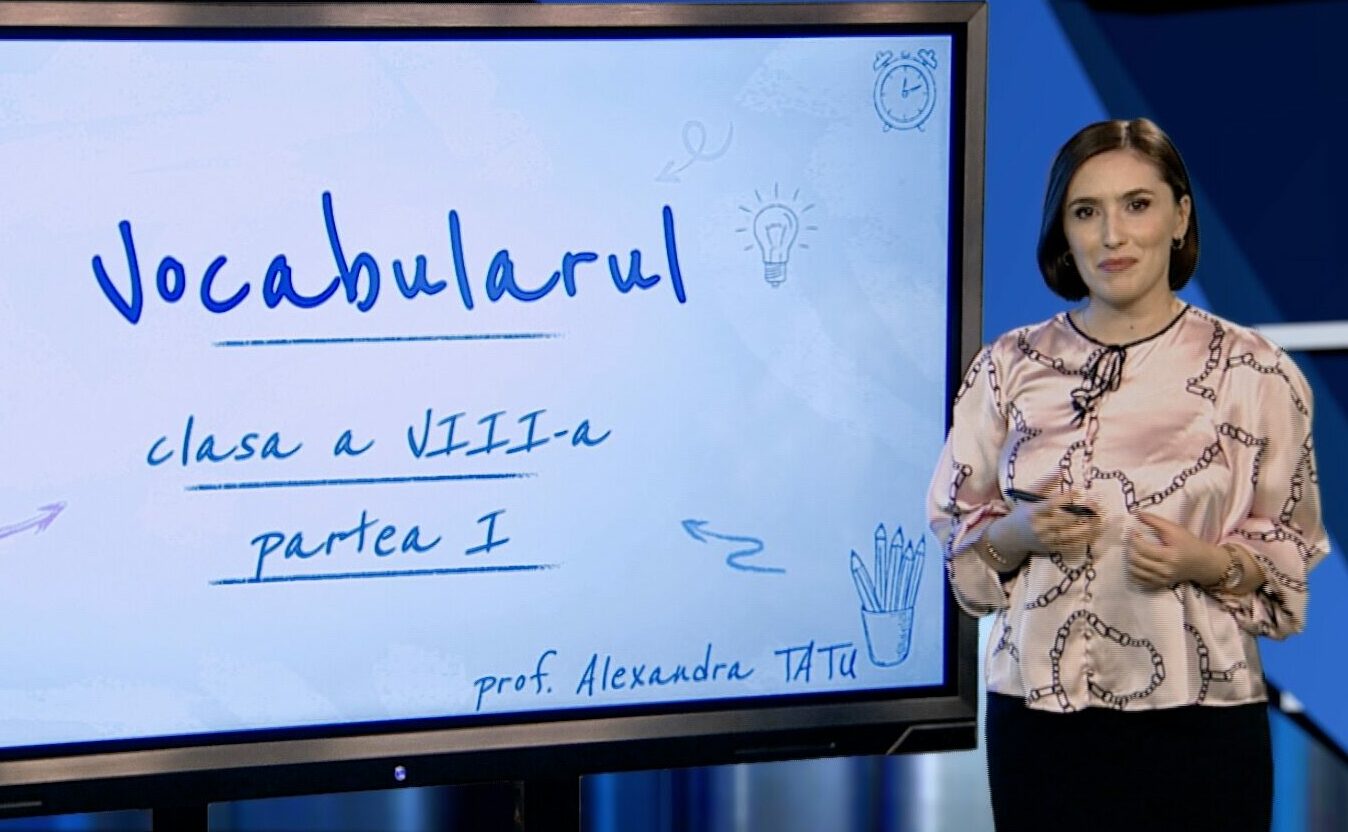 Vocabularul
clasa a VIII-a
partea I
prof. Alexandra TATU